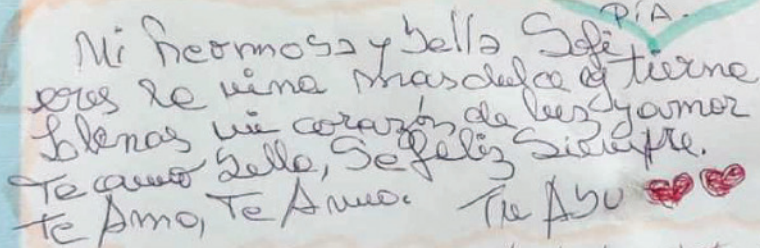 PíA.
Mi hermosa y bella Sofi
eres la nina mas dulce y tierna
LLenas mi corazón de luz y amor
Te amo bella, Se feliz Siempre.
Te Amo, Te Amo. Tu Abu